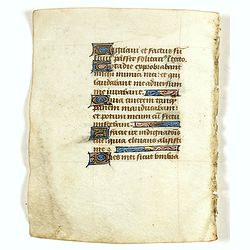 Vigilaui et factus sū
sicut passer solitari in tecto
Tota die exprobrabant
michi inimici mei et qui
laudabant me iurabant
Quia cinerem tanq̃
panem manducabam
et potum meum cū fletu
miscebam
A facie ire et indignationis
tue quia eleuans allisisti
me
Dies mei sicut umbra